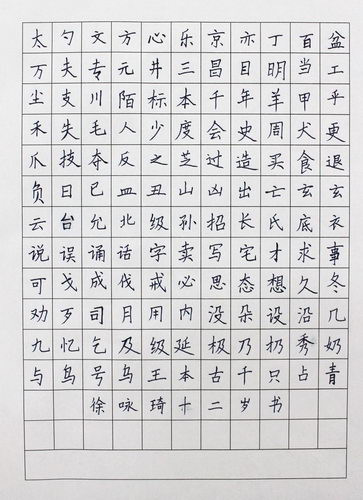 太勺文方心乐京亦丁百盆
万夫专元井三昌目明当工
尘支川陌标本千年羊甲乎
禾失毛人少度会史周犬更
爪技夺反之芝过造买食退
负日巳皿丑山凶出亡玄玄
云台允北级孙招长氏底衣
说误诵话字卖写宅才求事
可戈成伐戒必思态想久冬
劝歹司月用内没朵设沿几
九忆乞及级延极乃扔秀奶
与乌号乌王本古千只占青
徐咏琦十二岁书